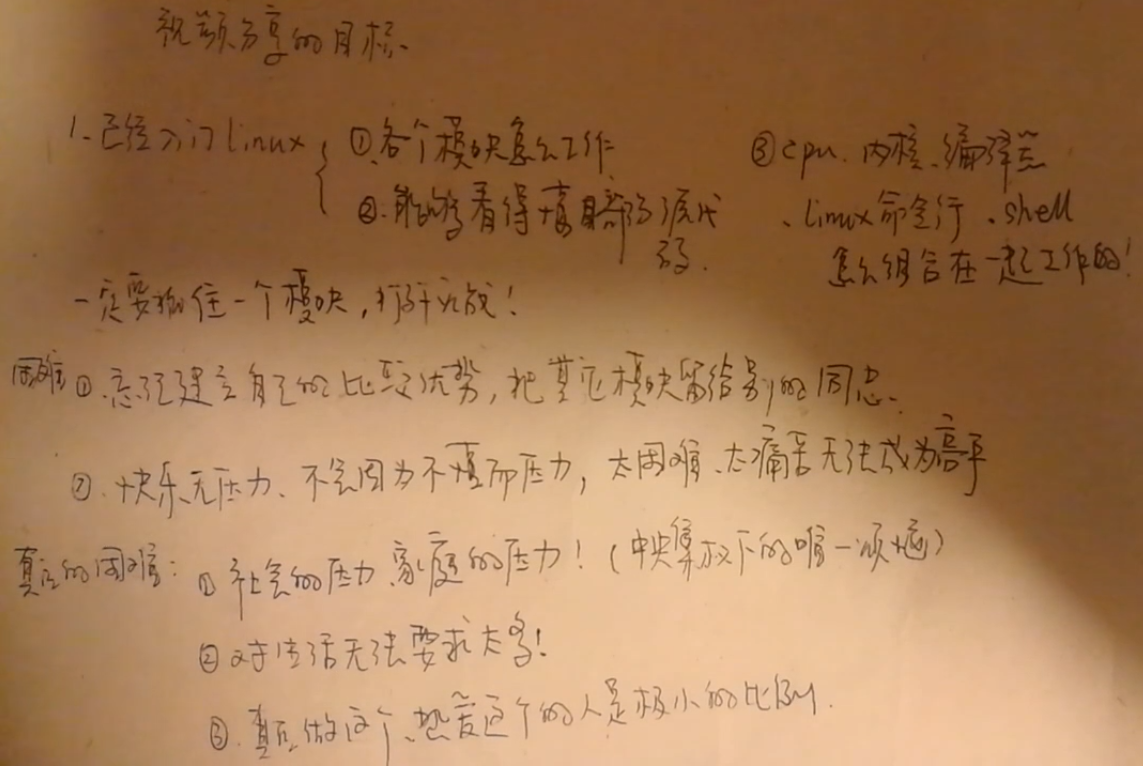 视频分享的目标.
1. 已经入门linux { ①.各个模块怎么工作
②.能够看得懂局部的源代
码.
③ cpu、内核、编译器
、linux命令行、shell
怎么组合在一起工作的!
一定要抓住一个模块,
困难①.忘记建立自己的比较优势,把其它模块留给别的同志.
②.快乐、无压力、不会因为不懂而压力,太困难、太痛苦无法成为高手
真正的困难: ①社会的压力、家庭的压力!(中央集权下的唯一烦恼)
②对生活无法要求太多!
③.真正做这个、热爱这个的人是极小的比例.